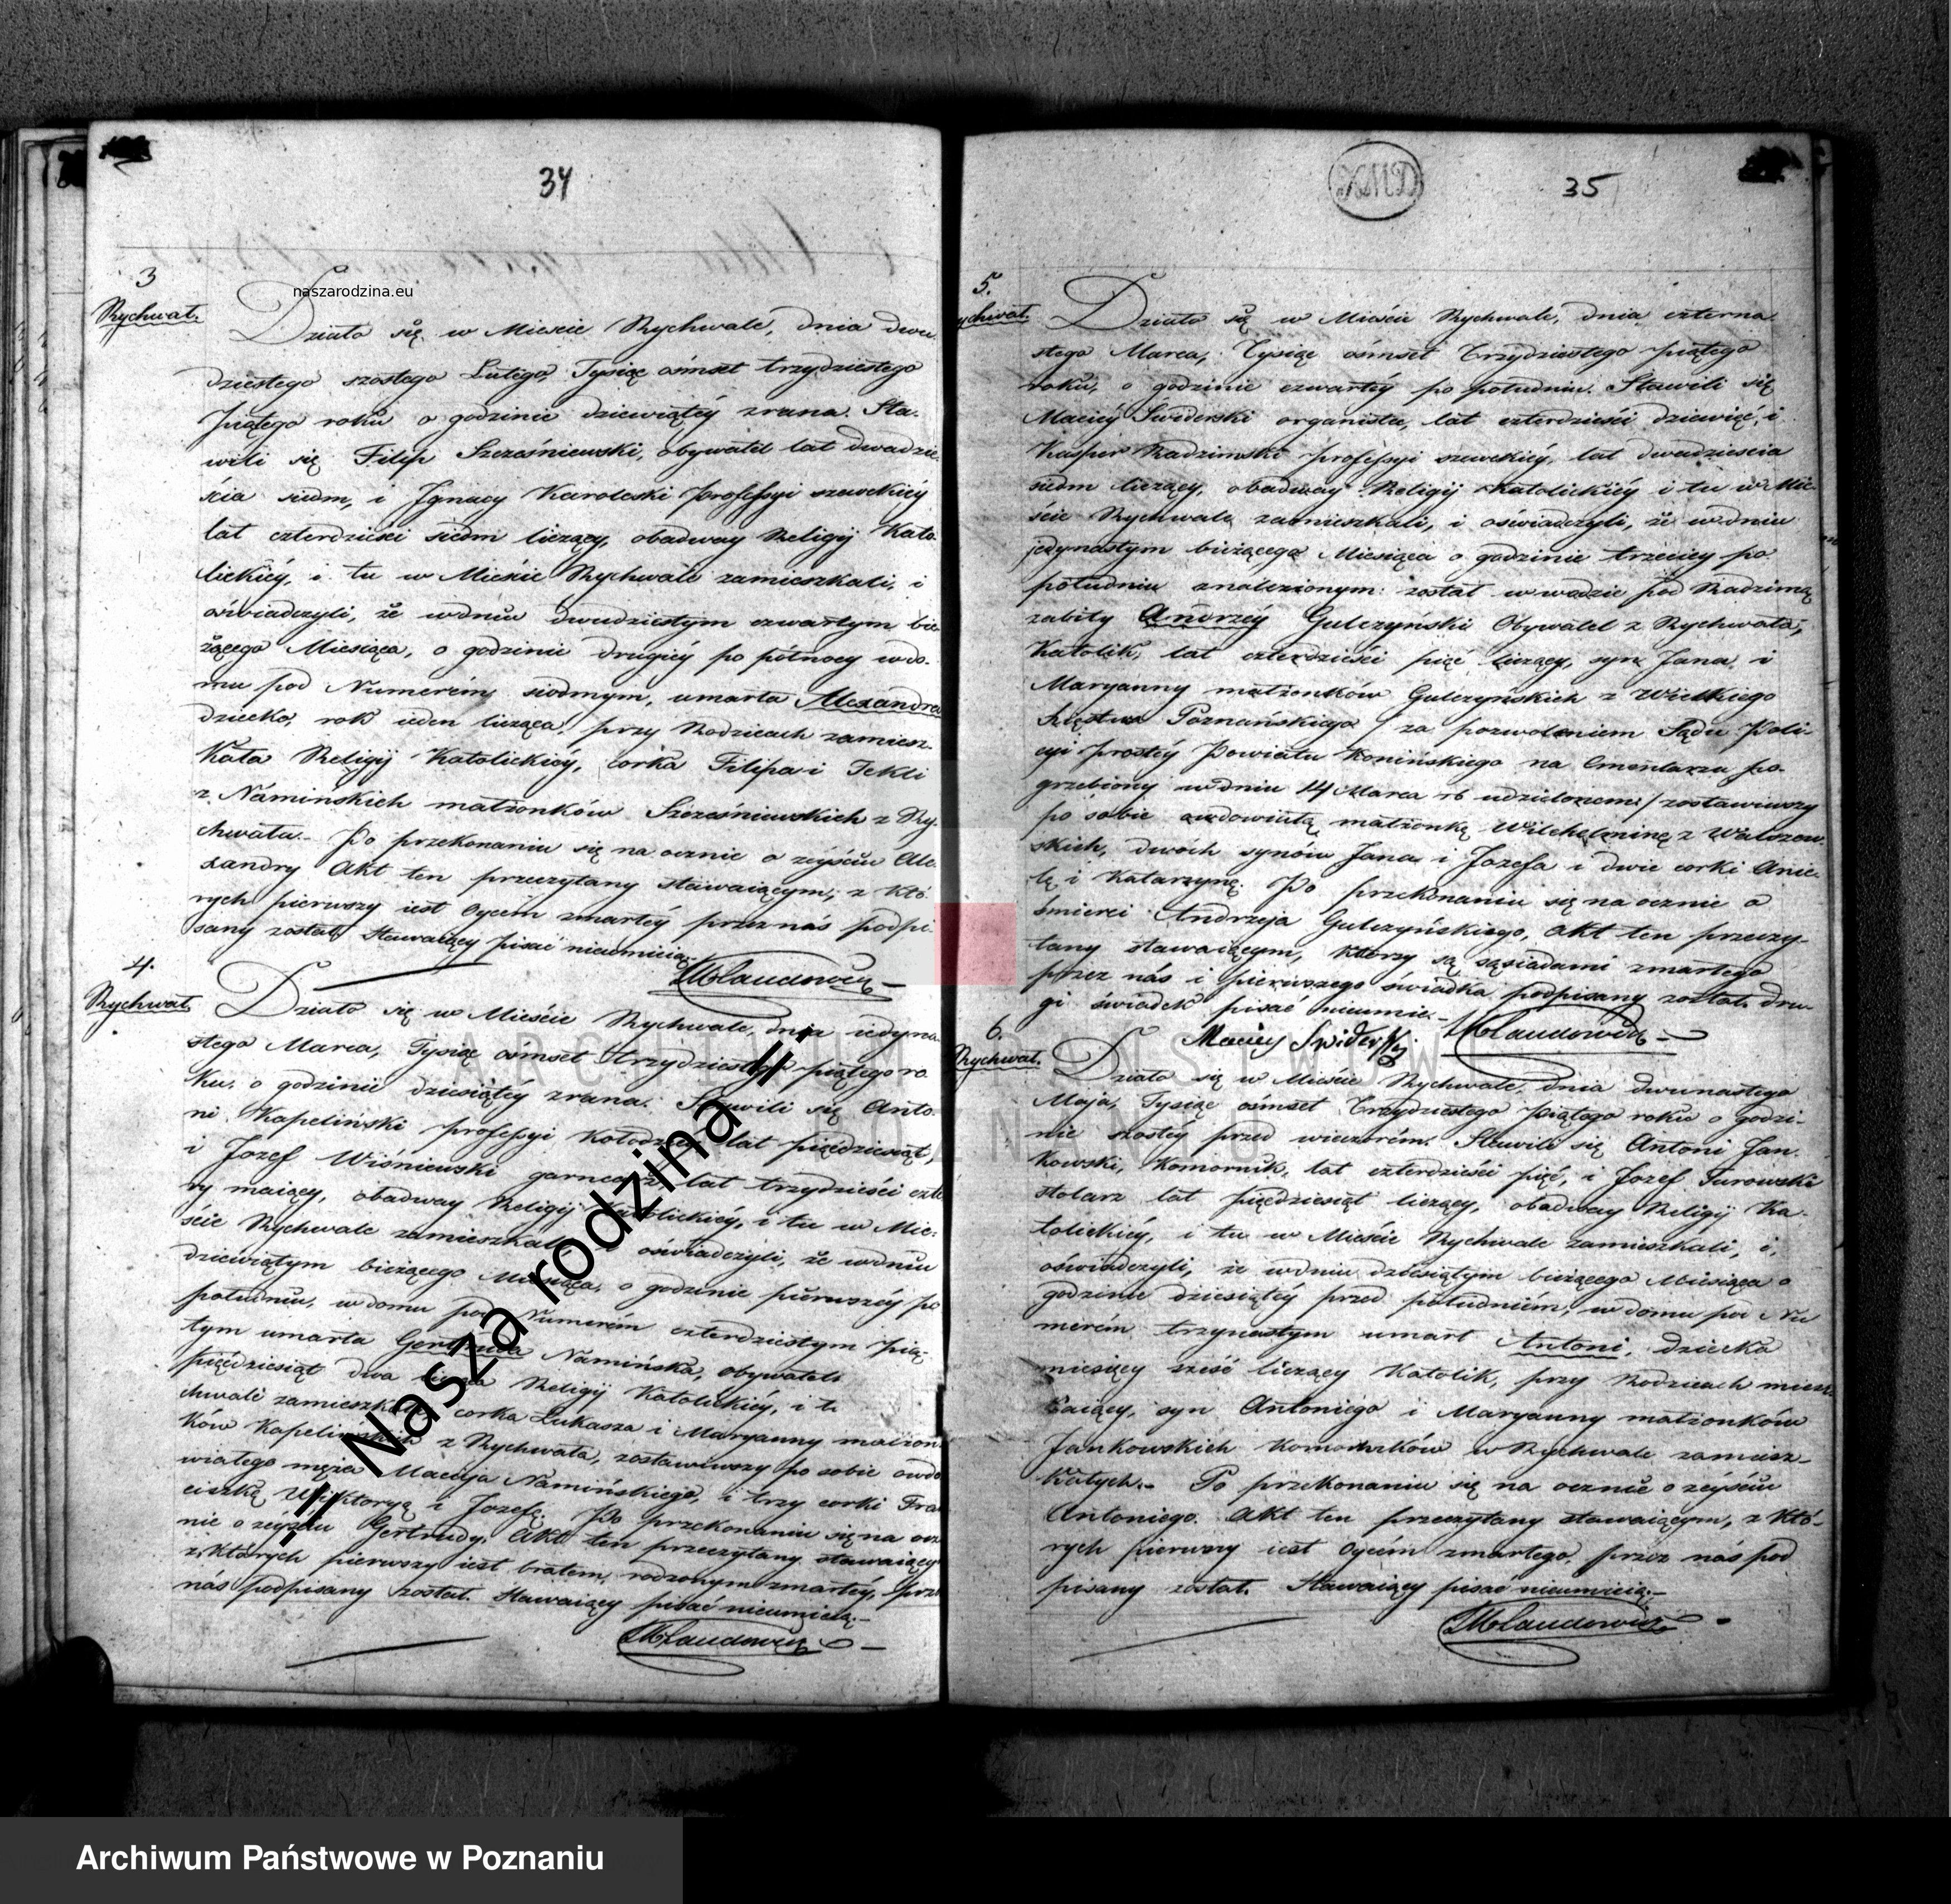 34
3
Rychwał.
naszarodzina.eu
Działo się w Mieście Rychwale, dnia dwu
dziestego szóstego Lutego, Tysiąc ośmset trzydziestego
piątego roku o godzinie dziewiątéy zrana. Sta-
wili się Filip Szcześniewski, obywatel lat dwadzie-
ścia siedm, i Ignacy Karoleski professyi szewckiéy
lat czterdzieści siedm liczący, obadway Religij Kato
lickiéy, i tu w Mieście Rychwale zamieszkali, i
oświadczyli, że wdniu dwudziestym czwartym bie-
żącego Miesiąca, o godzinie drugiéy po północy wdo-
mu pod Numerém siodmym, umarła Alexandra
dziecko, rok ieden licząca, przy Rodzicach zamiesz-
kała Religij Katolickiéy, córka Filipa i Tekli
z Namińskich małżonków Szcześniewskich z Ry-
chwała. Po przekonaniu się na ocznie o zéyściu Ale-
xandry Akt ten przeczytany stawaiącym, z któ-
rych pierwszy iest oycém zmarłéy przez nás podpi-
sany został. Stawaiący pisać nieumieią.
MKlaudowicz
4.
Rychwał
Działo się w Mieście Rychwale, dnia iedyna-
stego Marca, Tysiąc ośmset trzydziestego piątego ro
ku, o godzinie dziesiątéy zrana. Stawili się Anto-
ni Kapeliński professyi kołodziey lat pięćdziesiąt,
i Jozef Wiśniewski garncarz lat trzydzieści czte
ry maiący, obadway Religij Katolickiéy, i tu w Mie-
ście Rychwale zamieszkali, i oświadczyli, że wdniu
dziewiątym bieżącego Miesiąca, o godzinie pierwszéy po
południu, w domu pod Numerém czterdziestym pią-
tym umarła Gertruda Namińska, obywatelk
pięćdziesiąt dwa licząca Religij Katolickiéy, i t
chwale zamieszkała corka Łukasza i Maryanny małżon
ków Kapelińskich z Rychwała, zostawiwszy po sobie owdo
wiałego męża Macieja Namińskiego, i trzy corki Fran
ciszkę Wiktoryą i Jozefę. Po przekonaniu się na ocz
nie o zéyściu Gertrudy, Akt ten przeczytany stawaiący
z których pierwszy iest bratem rodzonym zmarłéy, prz
nás podpisany został. Stawaiący pisać nieumieią.
MKlaudowicz
-= Nasza rodzina =-
XMD
35
5.
ychwał.
Działo się w Mieście Rychwale, dnia czterna
stego Marca, Tysiąc ośmset Trzydziestego piątego
roku, o godzinie czwartéy po południu. Stawili się
Maciéy Świderski organista, lat czterdzieści dziewięć, i
Kasper Radzimski professyi szewckiéy, lat dwadzieścia
siedm liczący, obadway Religij Katolickiéy i tu w Mie-
ście Rychwale zamieszkali, i oświadczyli, że wdniu
jedynastym bieżącego Miesiąca o godzinie trzeciey po
południu znalezionym został w wodzie pod Radzimą
zabity Andrzéy Gulczyński Obywatel z Rychwała,
Katolik, lat czterdzieści pięć liczący, syn Jana i
Maryanny małżonków Gulczyńskich z Wielkiego
Księstwa Poznańskiego / za pozwoleniem Sądu Poli-
cyi prostéy Powiatu Konińskiego na Cmentarzu po-
grzebiony wdniu 14 Marca rb udzielonem / zostawiwszy
po sobie owdowiałą małżonkę Wilchelminę z Walszew-
skich, dwóch synów Jana i Jozefa i dwie corki Anie-
lę i Katarzynę. Po przekonaniu się na ocznie o
śmierci Andrzeja Gulczyńskiego, Akt ten przeczy-
tany stawaiącym, którzy są sąsiadami zmarłego
przez nás i pierwszego świadka podpisany został, dru-
gi świadek pisać nieumie.
Maciey Swiderski MKlaudowicz
6.
Rychwał.
Działo się w Mieście Rychwale, dnia dwunastego
Maja, Tysiąc ośmset Trzydziestego piątego roku o godzi-
nie szostéy przed wieczorém. Stawili się Antoni Jan-
kowski, Komornik, lat czterdzieści pięć, i Jozef Turowski
stolarz lat pięćdziesiąt liczący, obadway Religij Ka-
tolickiéy, i tu w Mieście Rychwale zamieszkali, i,
oświadczyli, że wdniu dziesiątym bieżącego Miesiąca o
godzinie dziesiątéy przed południém, w domu po Nu
merém trzynastym umarł Antoni, dziecko
miesięcy sześć liczący Katolik, przy Rodzicach miesz-
kaiący, syn Antoniego i Maryanny małżonków
Jankowskich Komorników w Rychwale zamiesz-
kałych. Po przekonaniu się na ocznie o zéyściu
Antoniego. Akt ten przeczytany stawaiącym, z któ-
rych pierwszy iest oycém zmarłego, przez nás pod
pisany został. Stawaiący pisać nieumieią.
MKlaudowicz
ARCHIWUM PAŃSTWOWE
W POZNANIU
Archiwum Państwowe w Poznaniu